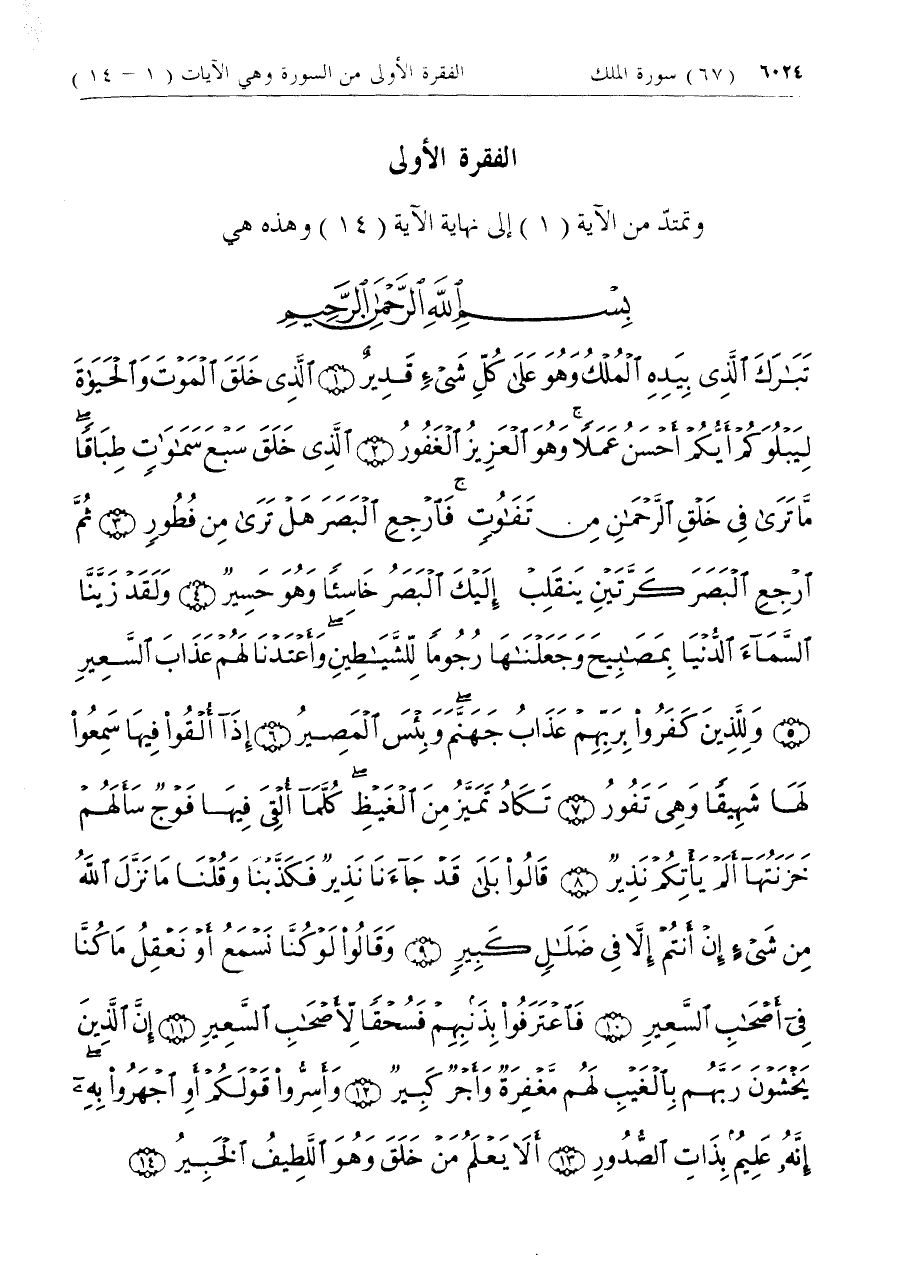 ٦٠٢٤ (٦٧) سورة الملك الفقرة الأولى من السورة وهي الآيات (١ - ١٤)
الفقرة الأولى
وتمتدّ من الآية (١) إلى نهاية الآية (١٤) وهذه هي
بِسْمِ ٱللَّهِ ٱلرَّحْمَٰنِ ٱلرَّحِيمِ
تَبَٰرَكَ ٱلَّذِى بِيَدِهِ ٱلْمُلْكُ وَهُوَ عَلَىٰ كُلِّ شَىْءٍ قَدِيرٌ ﴿١﴾ ٱلَّذِى خَلَقَ ٱلْمَوْتَ وَٱلْحَيَوٰةَ
لِيَبْلُوَكُمْ أَيُّكُمْ أَحْسَنُ عَمَلًا ۚ وَهُوَ ٱلْعَزِيزُ ٱلْغَفُورُ ﴿٢﴾ ٱلَّذِى خَلَقَ سَبْعَ سَمَٰوَٰتٍ طِبَاقًا ۖ
مَّا تَرَىٰ فِى خَلْقِ ٱلرَّحْمَٰنِ مِن تَفَٰوُتٍ ۚ فَٱرْجِعِ ٱلْبَصَرَ هَلْ تَرَىٰ مِن فُطُورٍ ﴿٣﴾ ثُمَّ
ٱرْجِعِ ٱلْبَصَرَ كَرَّتَيْنِ يَنقَلِبْ إِلَيْكَ ٱلْبَصَرُ خَاسِئًا وَهُوَ حَسِيرٌ ﴿٤﴾ وَلَقَدْ زَيَّنَّا
ٱلسَّمَآءَ ٱلدُّنْيَا بِمَصَٰبِيحَ وَجَعَلْنَٰهَا رُجُومًا لِّلشَّيَٰطِينِ ۖ وَأَعْتَدْنَا لَهُمْ عَذَابَ ٱلسَّعِيرِ
﴿٥﴾ وَلِلَّذِينَ كَفَرُوا۟ بِرَبِّهِمْ عَذَابُ جَهَنَّمَ ۖ وَبِئْسَ ٱلْمَصِيرُ ﴿٦﴾ إِذَآ أُلْقُوا۟ فِيهَا سَمِعُوا۟
لَهَا شَهِيقًا وَهِىَ تَفُورُ ﴿٧﴾ تَكَادُ تَمَيَّزُ مِنَ ٱلْغَيْظِ ۖ كُلَّمَآ أُلْقِىَ فِيهَا فَوْجٌ سَأَلَهُمْ
خَزَنَتُهَآ أَلَمْ يَأْتِكُمْ نَذِيرٌ ﴿٨﴾ قَالُوا۟ بَلَىٰ قَدْ جَآءَنَا نَذِيرٌ فَكَذَّبْنَا وَقُلْنَا مَا نَزَّلَ ٱللَّهُ
مِن شَىْءٍ إِنْ أَنتُمْ إِلَّا فِى ضَلَٰلٍ كَبِيرٍ ﴿٩﴾ وَقَالُوا۟ لَوْ كُنَّا نَسْمَعُ أَوْ نَعْقِلُ مَا كُنَّا
فِىٓ أَصْحَٰبِ ٱلسَّعِيرِ ﴿١٠﴾ فَٱعْتَرَفُوا۟ بِذَنۢبِهِمْ فَسُحْقًا لِّأَصْحَٰبِ ٱلسَّعِيرِ ﴿١١﴾ إِنَّ ٱلَّذِينَ
يَخْشَوْنَ رَبَّهُم بِٱلْغَيْبِ لَهُم مَّغْفِرَةٌ وَأَجْرٌ كَبِيرٌ ﴿١٢﴾ وَأَسِرُّوا۟ قَوْلَكُمْ أَوِ ٱجْهَرُوا۟ بِهِۦٓ ۖ
إِنَّهُۥ عَلِيمٌۢ بِذَاتِ ٱلصُّدُورِ ﴿١٣﴾ أَلَا يَعْلَمُ مَنْ خَلَقَ وَهُوَ ٱللَّطِيفُ ٱلْخَبِيرُ ﴿١٤﴾